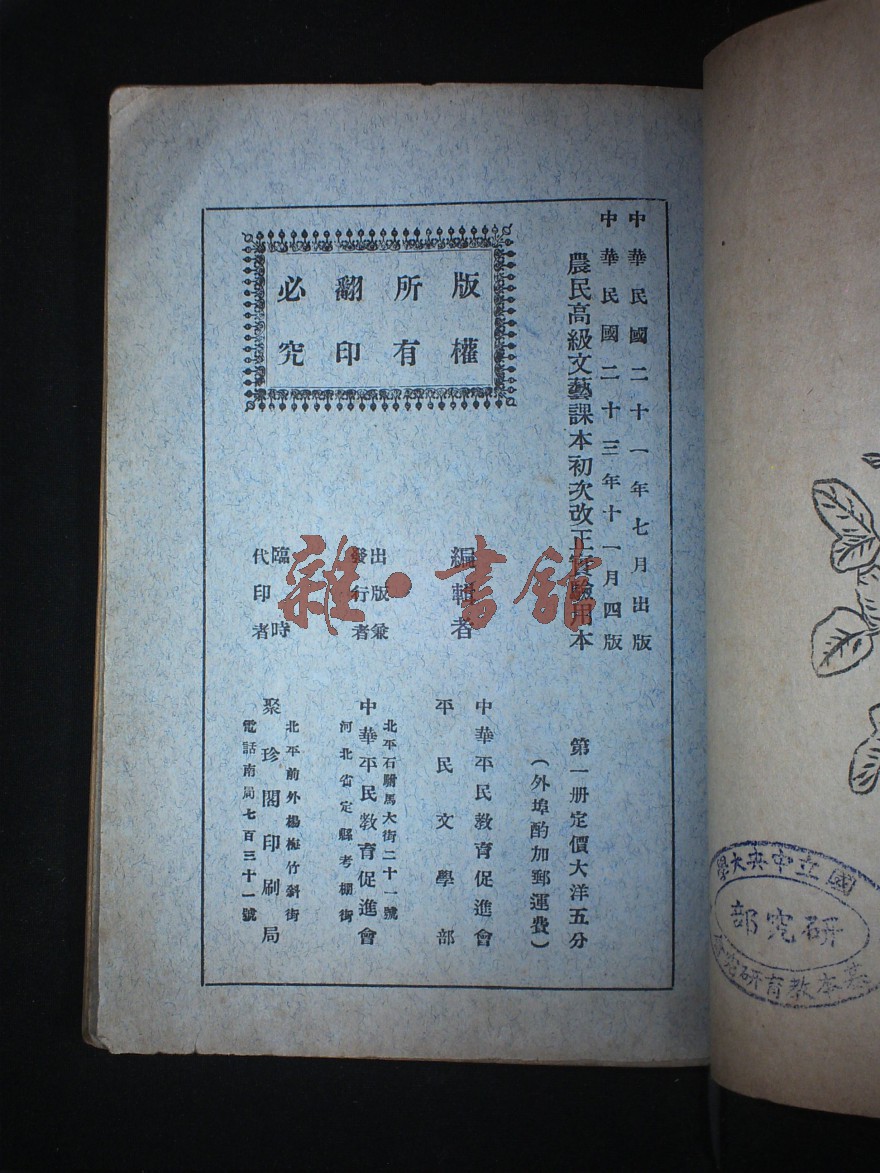 中華民國二十一年七月出版
中華民國二十三年十一月四版
農民高級文藝課本初次改正實驗用本
第一册定價大洋五分
(外埠酌加郵運費)
版權
所有
翻印
必究
編輯者
中華平民教育促進會
平民文學部
出版兼
發行者
北平石駙馬大街二十一號
中華平民教育促進會
河北省定縣考棚街
臨時
代印者
北平前外楊梅竹斜街
聚珍閣印刷局
電話南局七百三十一號
雜·書館
國立中央大學
研究部
教育研究